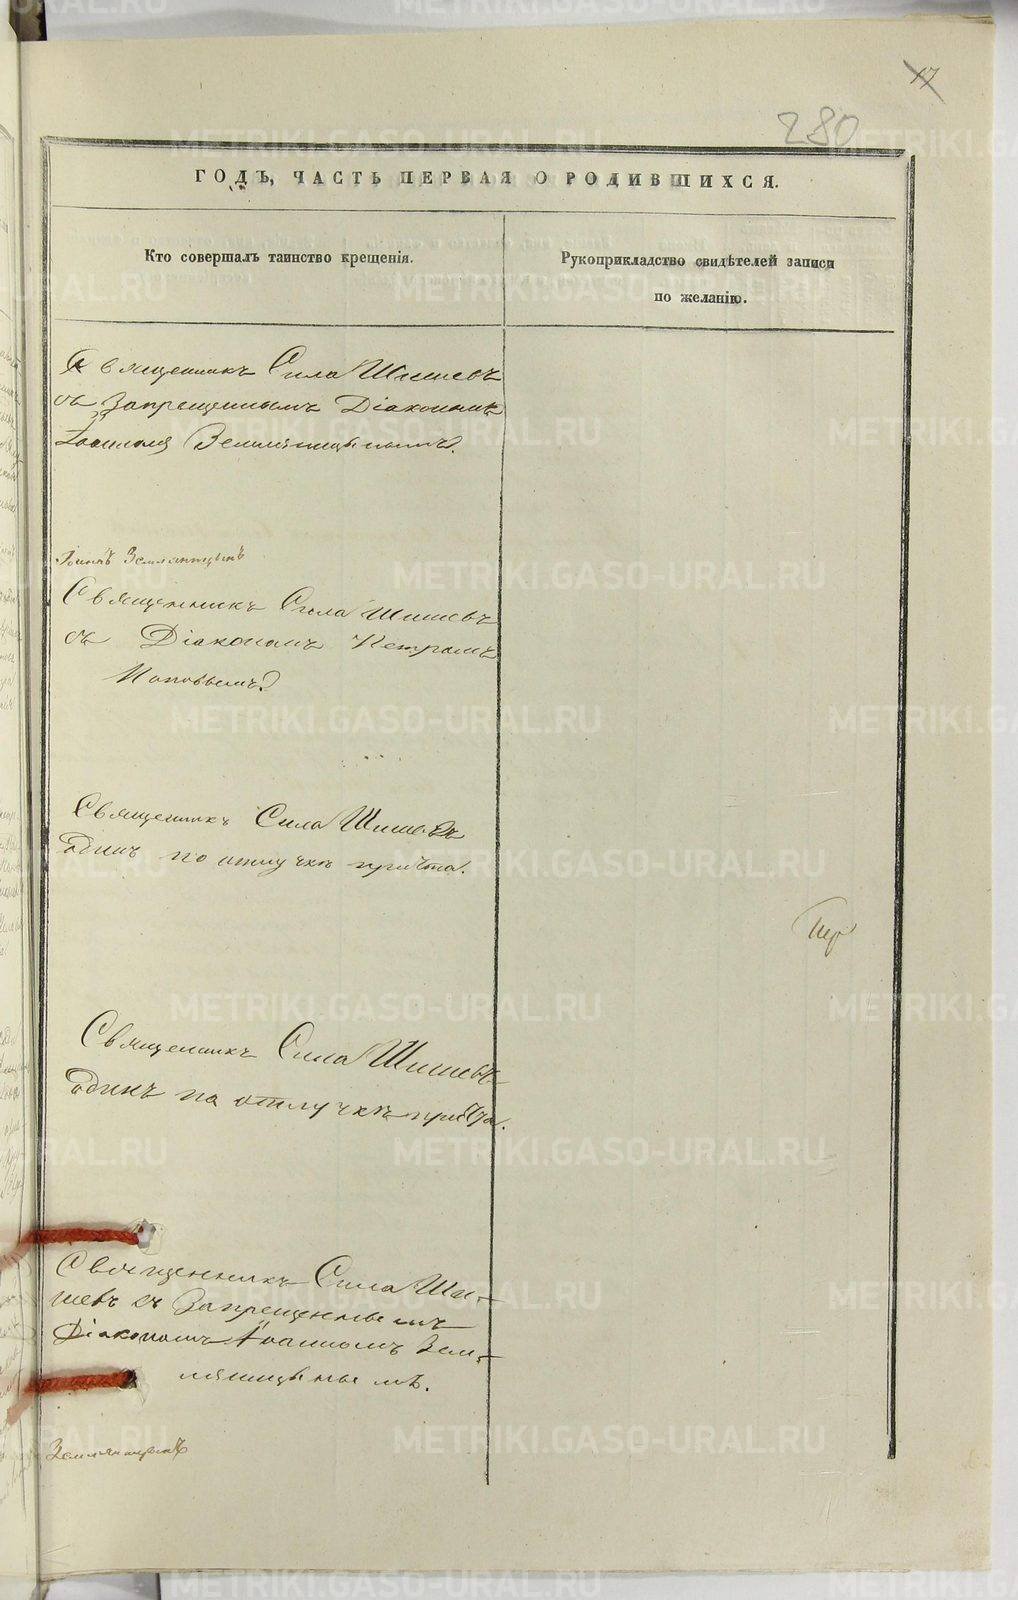 17
280
ГОДЪ, ЧАСТЬ ПЕРВАЯ О РОДИВШИХСЯ.
Кто совершалъ таинство крещенія.
Рукоприкладство свидѣтелей записи
по желанію.
Священникъ Сила Шишевъ
съ Запрещеннымъ Діакономъ
Іоанномъ Земляницынымъ.
Іоаннъ Земляницынъ
Священникъ Сила Шишевъ
съ Діакономъ Петромъ
Поповымъ.
Священникъ Сила Шишевъ
одинъ по отлучкѣ причта.
Священникъ Сила Шишевъ
одинъ по отлучкѣ причта.
Священникъ Сила Ши-
шевъ съ Запрещеннымъ
Діакономъ Іоанномъ Зем-
ляницынымъ.
Земляницынъ
METRIKI.GASO-URAL.RU